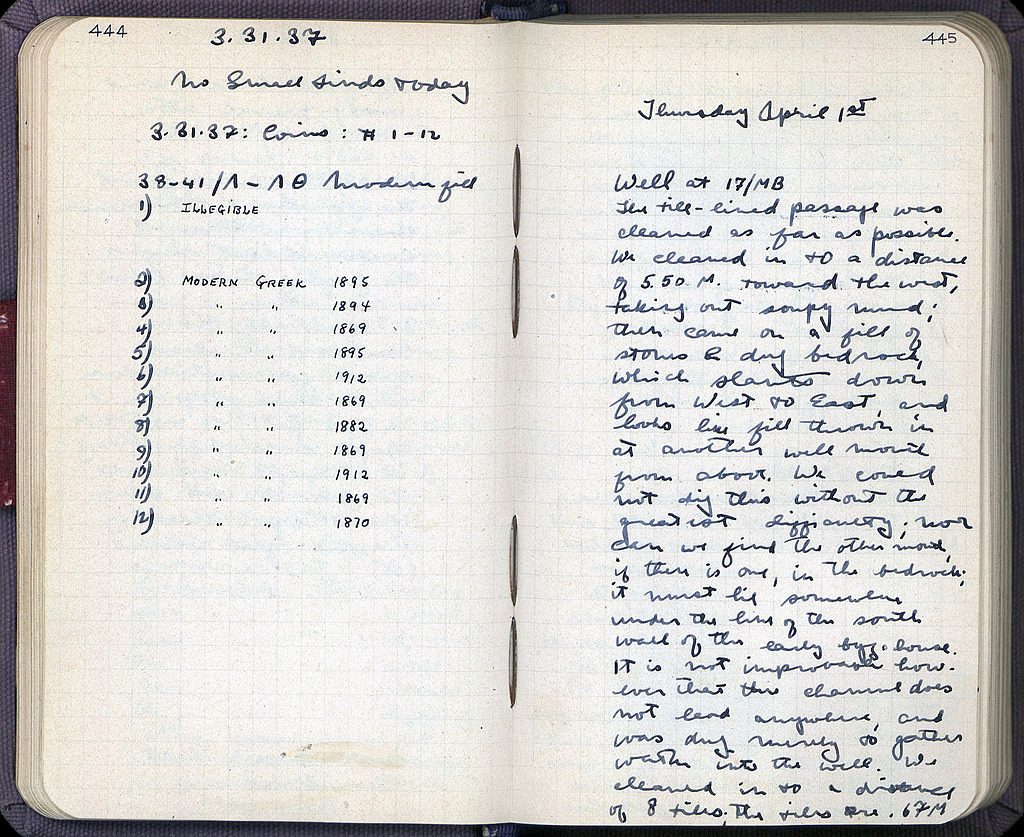 444
3.31.37
No Small Finds today
3.31.37: Coins: # 1-12
38-41/Λ-ΛΘ Modern fill
1) ILLEGIBLE
2) MODERN GREEK 1895
3) " " 1894
4) " " 1869
5) " " 1895
6) " " 1912
7) " " 1869
8) " " 1882
9) " " 1869
10) " " 1912
11) " " 1869
12) " " 1870
445
Thursday April 1st
Well at 17/MB
The tile-lined passage was
cleaned as far as possible.
We cleaned in to a distance
of 5.50 M. toward the west,
taking out soupy mud;
then came on a fill of
stones & dug bedrock,
which slants down
from West to East, and
looks like fill thrown in
at another well mouth
from above. We could
not dig this without the
greatest difficulty; nor
can we find the other mouth,
if there is one, in the bedrock;
it must lie somewhere
under the line of the south
wall of the early byz. house.
It is not improbable how-
ever that this channel does
not lead anywhere, and
was dug merely to gather
water into the well. We
cleaned in to a distance
of 8 tiles; the tiles are .67M